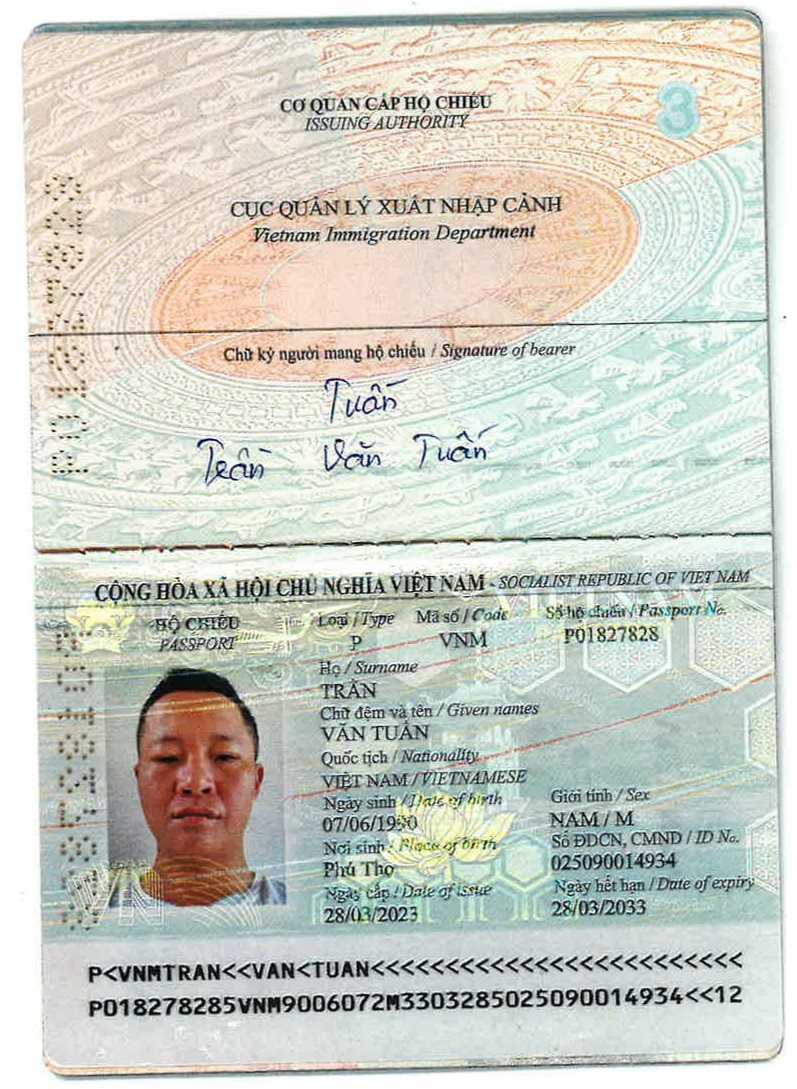 CƠ QUAN CẤP HỘ CHIẾU
ISSUING AUTHORITY
3
CỤC QUẢN LÝ XUẤT NHẬP CẢNH
Vietnam Immigration Department
Chữ ký người mang hộ chiếu / Signature of bearer
Tuấn
Trần Văn Tuấn
CỘNG HÒA XÃ HỘI CHỦ NGHĨA VIỆT NAM - SOCIALIST REPUBLIC OF VIET NAM
HỘ CHIẾU
PASSPORT
Loại / Type Mã số / Code Số hộ chiếu / Passport No.
P VNM P01827828
Họ / Surname
TRẦN
Chữ đệm và tên / Given names
VĂN TUẤN
Quốc tịch / Nationality
VIỆT NAM / VIETNAMESE
Ngày sinh / Date of birth Giới tính / Sex
07/06/1990 NAM / M
Nơi sinh / Place of birth Số ĐDCN, CMND / ID No.
Phú Thọ 025090014934
Ngày cấp / Date of issue Ngày hết hạn / Date of expiry
28/03/2023 28/03/2033
VN
P<VNMTRAN<<VAN<TUAN<<<<<<<<<<<<<<<<<<<<<<<<<
P018278285VNM9006072M3303285025090014934<<12